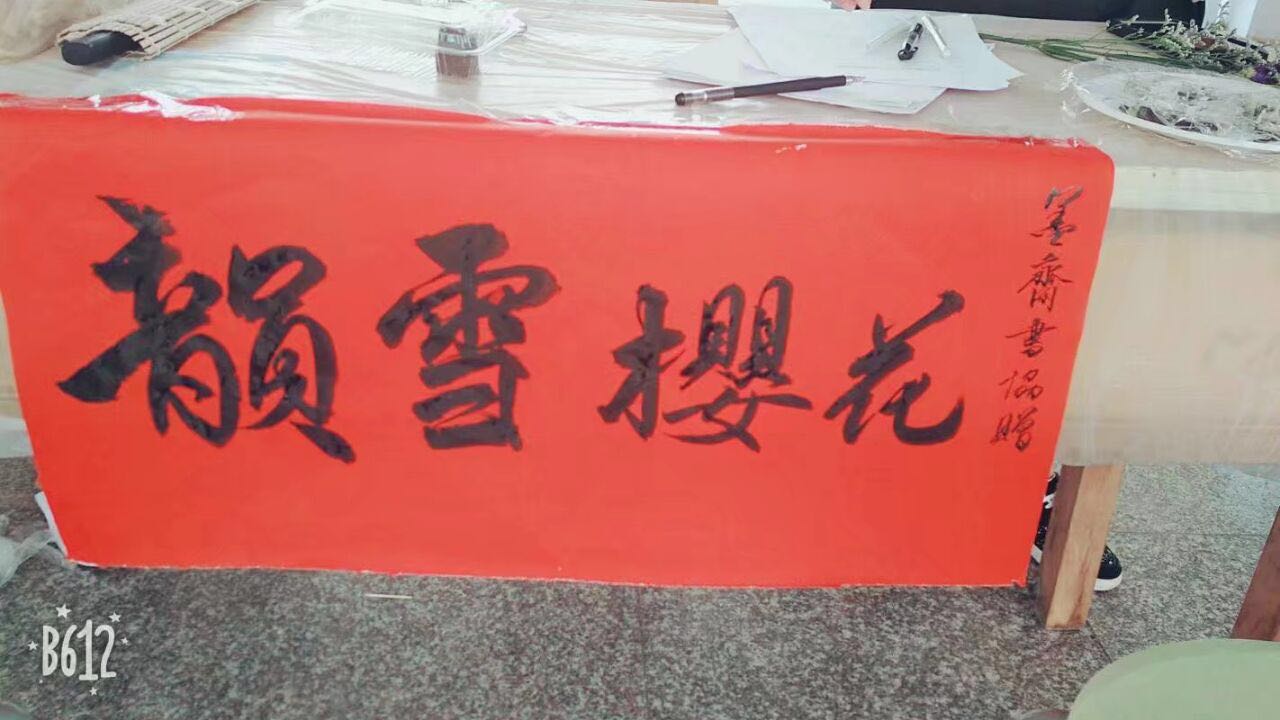 韻雪櫻花
墨齋書協贈
B612